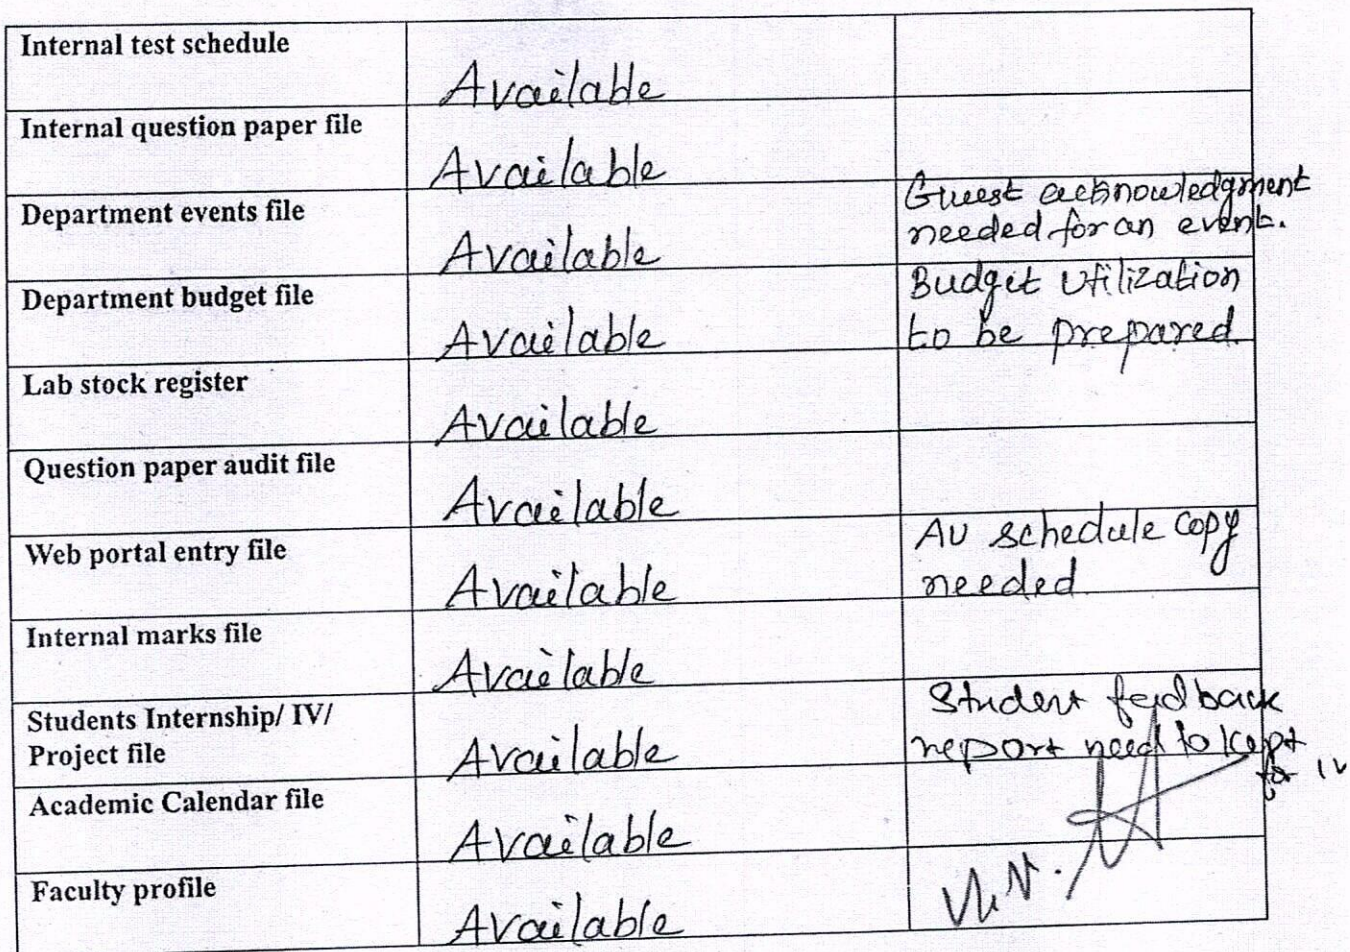 Internal test schedule
Available
Internal question paper file
Available
Department events file
Available
Guest acknowledgment
needed for an event.
Department budget file
Available
Budget Utilization
to be prepared.
Lab stock register
Available
Question paper audit file
Available
Web portal entry file
Available
AU schedule copy
needed.
Internal marks file
Available
Students Internship/ IV/
Project file
Available
Student feedback
report need to kept
for IV
Academic Calendar file
Available
Faculty profile
Available